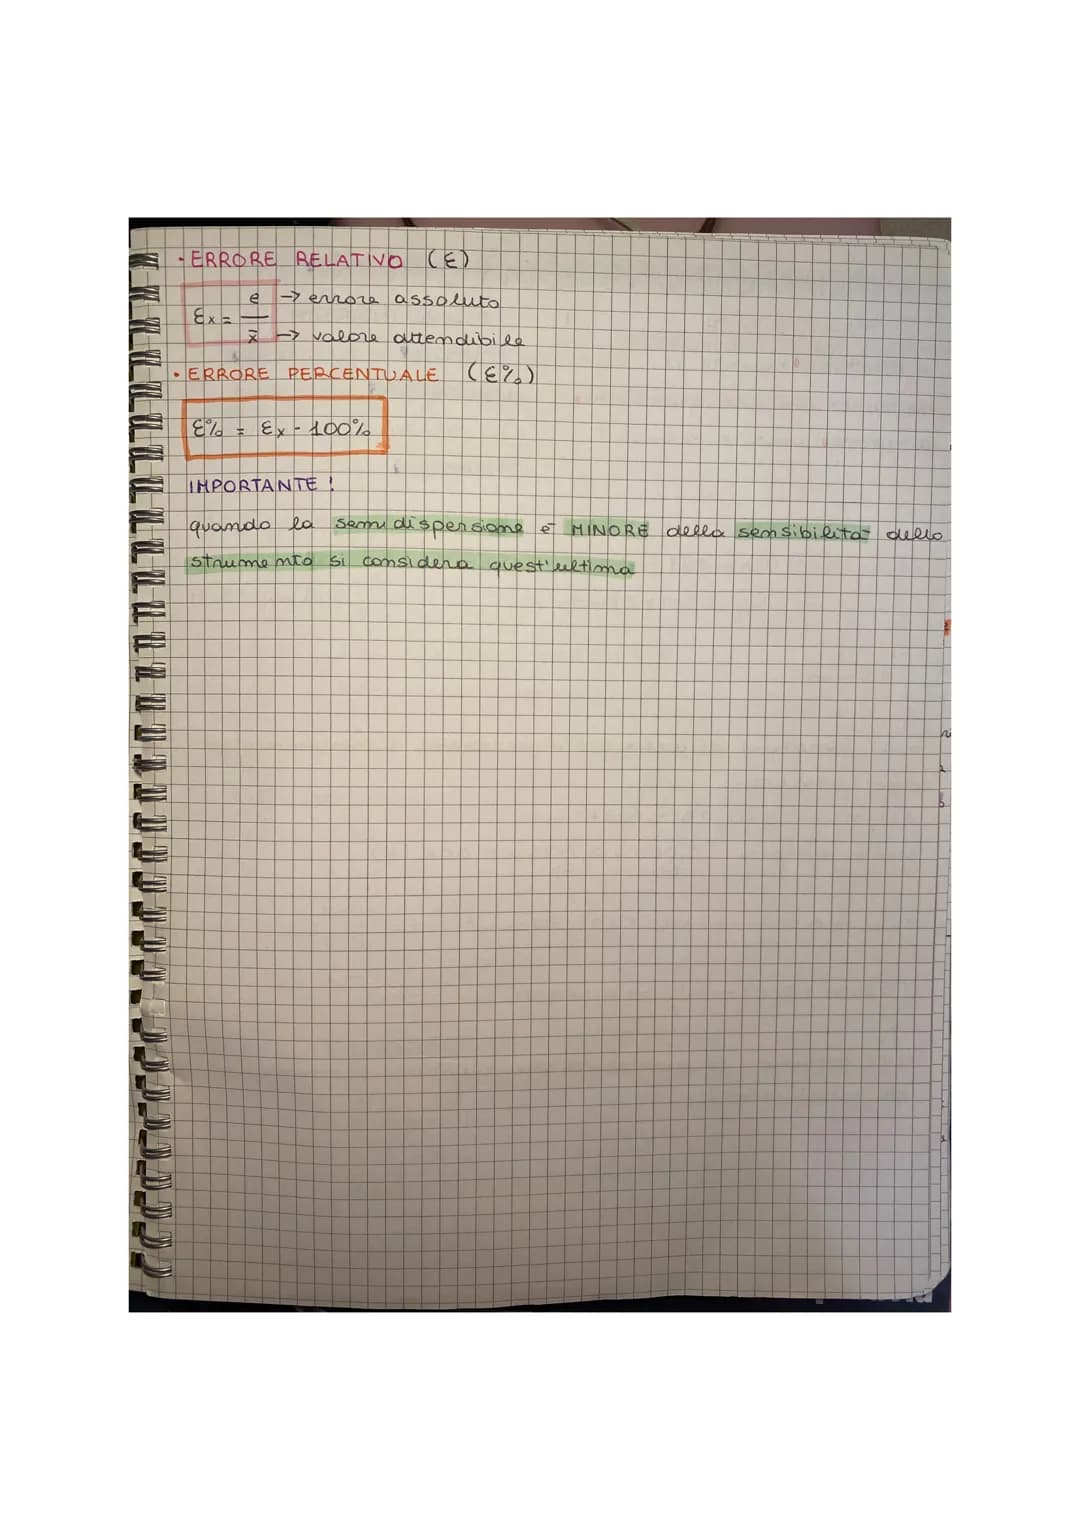 • ERRORE RELATIVO (ε)
εx = e/x̄
e → errore assoluto
x̄ → valore attendibile
• ERRORE PERCENTUALE (ε%)
ε% = εx - 100%
IMPORTANTE !
quando la semidispersione è MINORE della sensibilità dello
strumento si considera quest'ultima